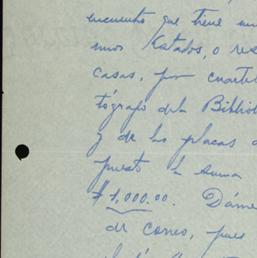 encuentro que tiene un
unos Estados, o res
casas, por cuarte
tógrafo de la Biblio
y de las placas d
puesto la suma
$1,000.00. Dáme
de correo, pues